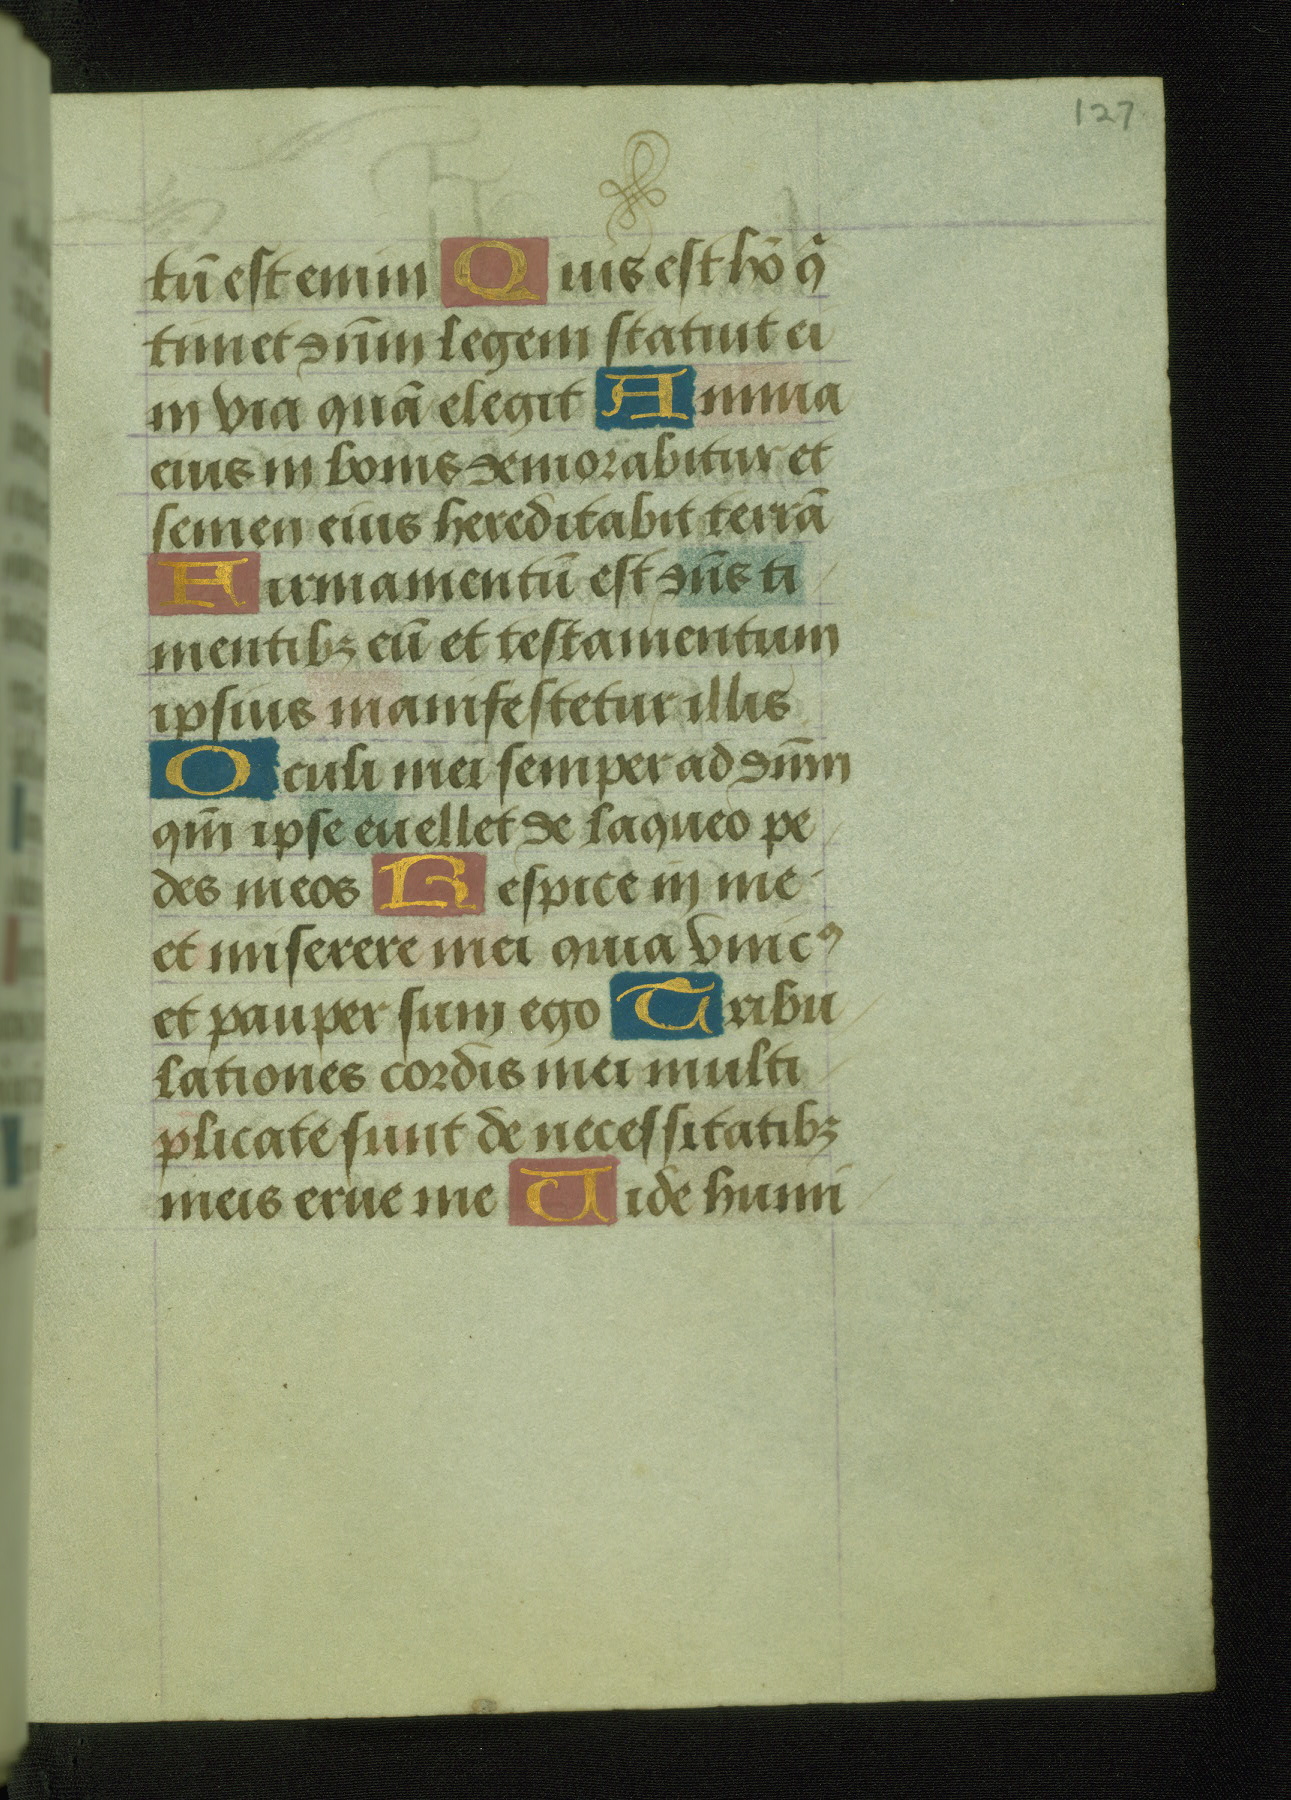 127
tū est enim Quis est hō q̄
timet dn̄m legem statuit ei
in via quā elegit Anima
eius in bonis demorabitur et
semen eius hereditabit terrā
Firmamentū est dn̄s ti
mentibꝫ eū et testamentum
ipsius manifestetur illis
Oculi mei semper ad dn̄m
qm̄ ipse euellet de laqueo pe
des meos Respice in me
et miserere mei quia vnicꝰ
et pauper sum ego Tribu
lationes cordis mei multi
plicate sunt de necessitatibꝫ
meis erue me Uide humi